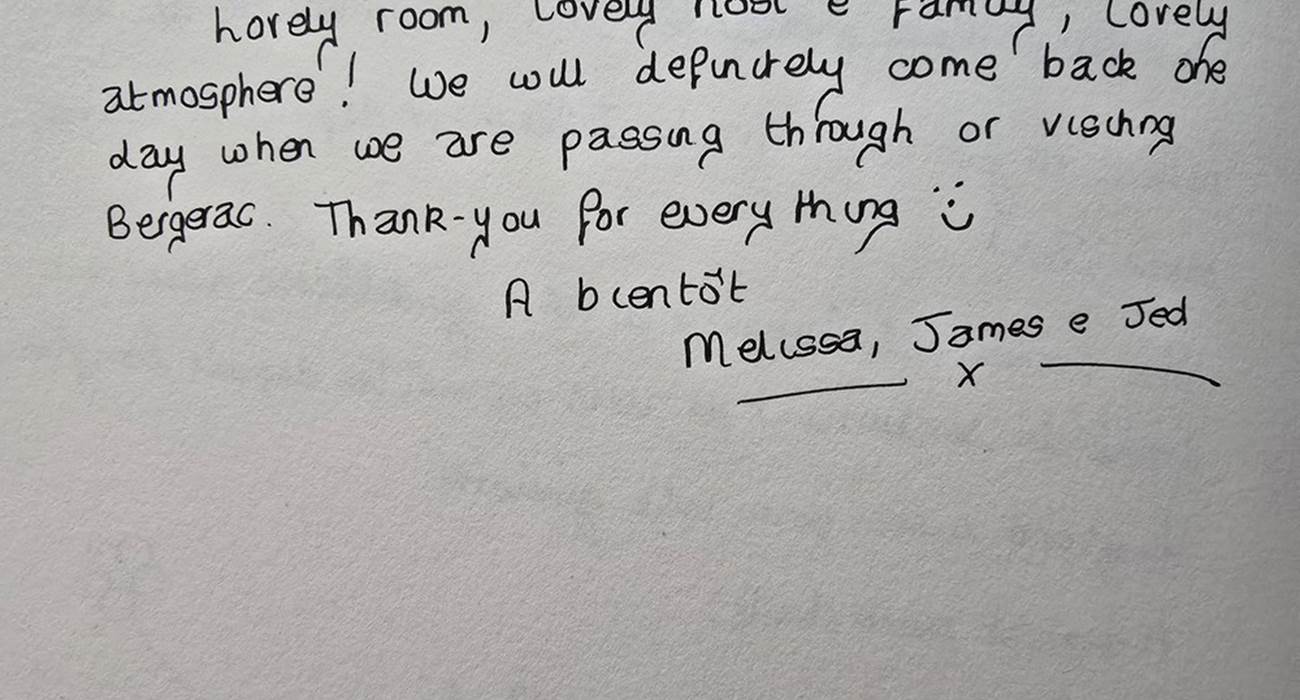 Lovely room, Lovely host & Family, Lovely
atmosphere! We will definitely come back one
day when we are passing through or visiting
Bergerac. Thank-you for everything :)
A bientôt
Melissa, James & Jed
x